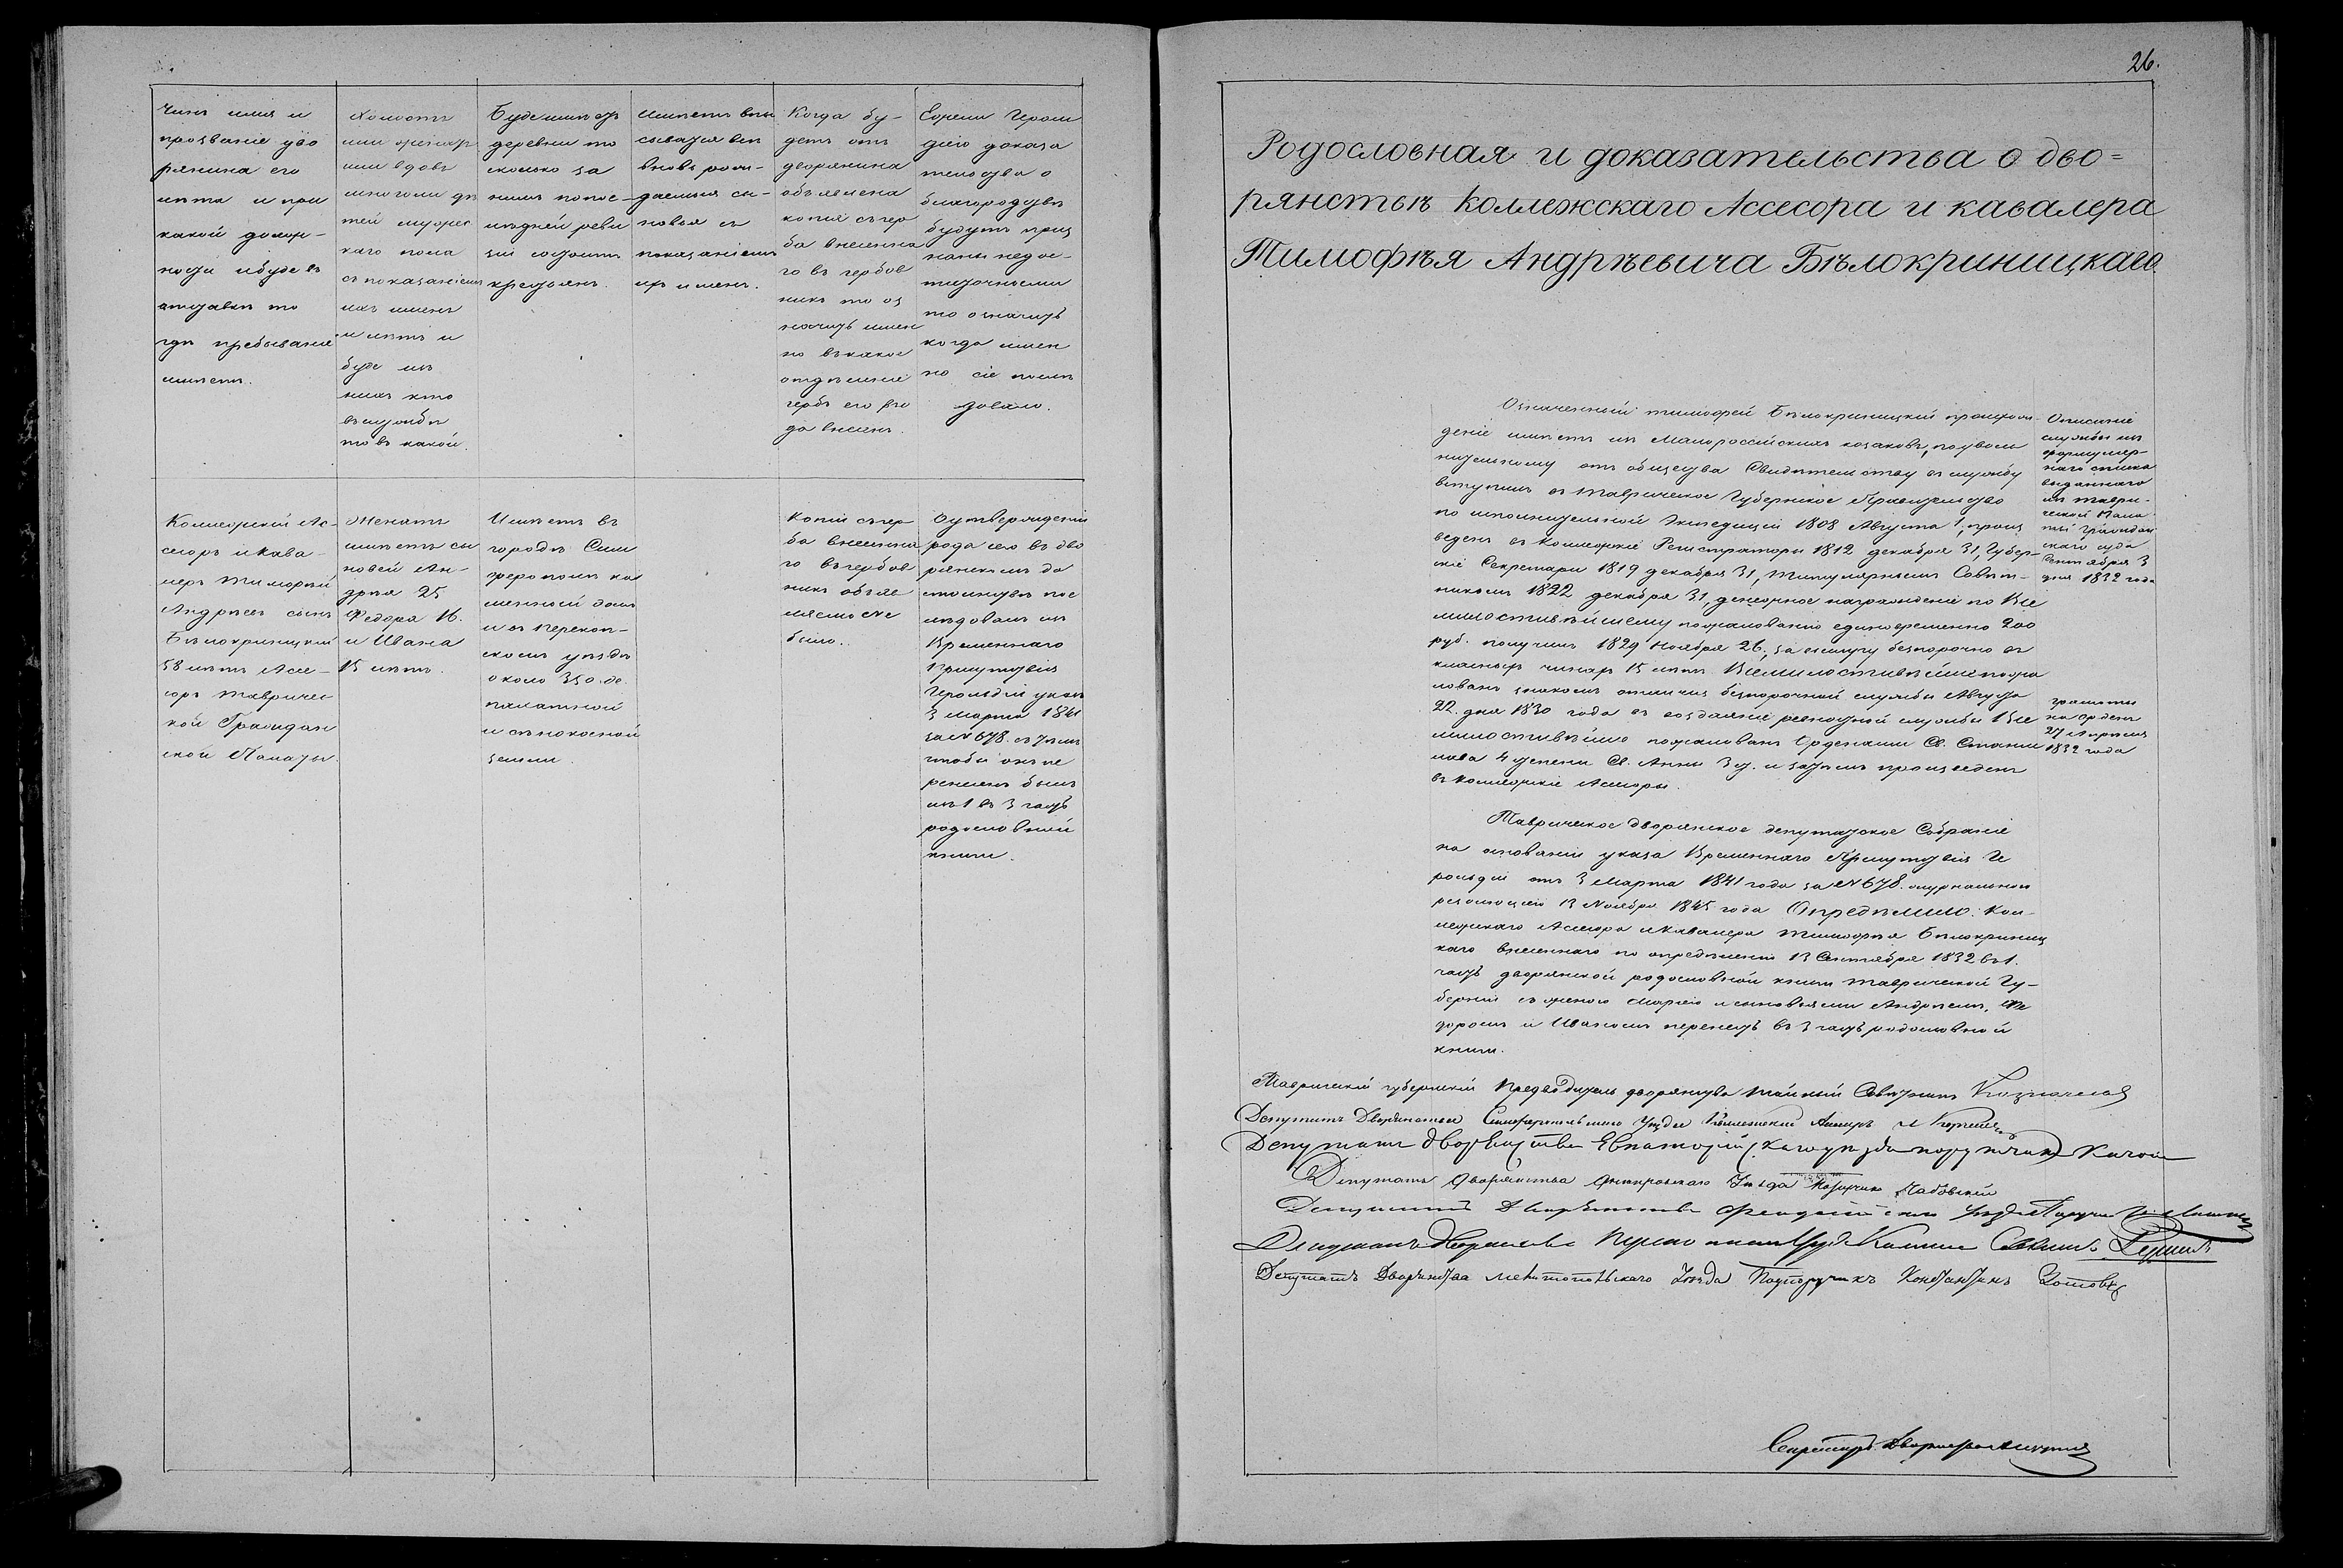 Чинъ имя и
прозваніе дво
рянина его
лѣта и при
какой долж-
ности и буде въ
отставкѣ то
гдѣ пребываніе
имѣетъ.
Холостъ
или женатъ
или вдовъ
многоли дѣ
тей мужес
каго пола
съ показаніемъ
ихъ именъ
и лѣтъ и
буде изъ
нихъ кто
въ службѣ
то въ какой.
Буде имѣетъ
деревни то
сколько за
нимъ по пос-
лѣдней реви
зіи состоитъ
крестьянъ.
Имѣетъ впи
сыватся всѣ
вновь рож-
даемыя сы-
новья съ
показаніемъ
ихъ именъ.
Когда бу-
детъ отъ
дворянина
объявлена
копія съ гер
ба внесенна
го въ гербов
никъ то оз
начить имен
но въ какое
отдѣленіе
гербъ его ро
да внесенъ.
Ежели Героль
діею доказа
тельства о
благородствѣ
будутъ приз
наны недос-
таточными
то означить
когда имен
но сіе послѣ
довало.
Коллежскій Ас-
сесоръ и Кава-
леръ Тимофей
Андреевъ сынъ
Бѣлокриницкій
58 лѣтъ Ассе-
соръ Тавричес
кой Граждан
ской Палаты.
Женатъ
имѣетъ сы
новей Ан-
дрея 25
Федора 16.
и Ивана
15 лѣтъ.
Имѣетъ въ
городѣ Сим
ферополѣ ка
менный домъ
и въ Перекоп-
скомъ уѣздѣ
около 350. де.
пахатной
и сѣнокосной
земли.
Копіи съ гер
ба внесенна
го въ гербов
никъ объяв
ляемо не
было.
О утвержденіи
рода сего въ дво
рянскомъ до
стоинствѣ пос
лѣдовалъ изъ
Временнаго
Присутствія
Герольдіи указъ
3 Марта 1841
за № 678. съ тѣмъ
чтобы онъ пе
ренесенъ былъ
изъ 1 въ 3 часть
родословной
книги.
26.
Родословная и доказательства о дво=
рянствѣ Коллежскаго Ассесора и кавалера
Тимофѣя Андрѣевича Бѣлокриницкаго.
Означенный Тимофей Бѣлокриницкій происхож-
деніе имѣетъ изъ Малороссійскихъ козаковъ, по уволь
нительному отъ общества Свидѣтельству въ службу
вступилъ въ Таврическое Губернское Правительство
по исполнительной Экспедиціи 1808 Августа 1, произ
веденъ въ Коллежскіе Регистраторы 1812 декабря 31, Губер-
скіе Секретари 1819 декабря 31, Титулярнымъ Совѣт-
никомъ 1822 декабря 31, денежное награжденіе по Все
милостивѣйшему пожалованію единовременно 200
руб. получилъ 1829 Ноября 26, за выслугу безпорочно въ
классныхъ чинахъ 15 лѣтъ Всемилостивѣйше пожа
лованъ знакомъ отличія безпорочной службы Августа
22. дня 1830 года въ воздаяніе ревностной службы Все
милостивѣйше пожалованъ Орденами Св. Станис
лава 4 степени Св. Анны 3 ст. и затѣмъ произведенъ
въ Коллежскіе Ассесоры.
Описаніе
службы изъ
формуляр-
наго списка
выданнаго
изъ Таври-
ческой Пала
ты Граждан
скаго суда
Сентября 3
дня 1832 года
грамоты
на орденъ
27 Апреля
1832 года
Таврическое дворянское депутатское Собраніе
на основаніи указа Временнаго Присутствія Ге
рольдіи отъ 3 Марта 1841 года за № 678. журнальною
резолюціею 13 Ноября 1845 года Опредѣлило: Кол-
лежскаго Ассесора и Кавалера Тимофея Бѣлокриниц
каго внесеннаго по опредѣленію 13 Сентября 1832 въ 1.
часть дворянской родословной книги Таврической Гу-
берніи съ женою Маріею и сыновьями Андреемъ, Фе
доромъ и Иваномъ перенесть въ 3 часть родословной
книги.
Таврическій губернскій Предводитель дворянства тайный Совѣтникъ Казначеевъ
Депутатъ Дворянства Симферопольскаго Уѣзда Коллежскій Ассесоръ
Депутатъ дворянства Евпаторійскаго уѣзда поручикъ
Депутатъ дворянства Днепровскаго Уѣзда Поручикъ
Депутатъ Дворянства Феодосійскаго уѣзда
Депутатъ Дворянства
Депутатъ Дворянства Мелитопольскаго Уѣзда Подпоручикъ Константинъ Зотовъ
Секретарь Дворянства